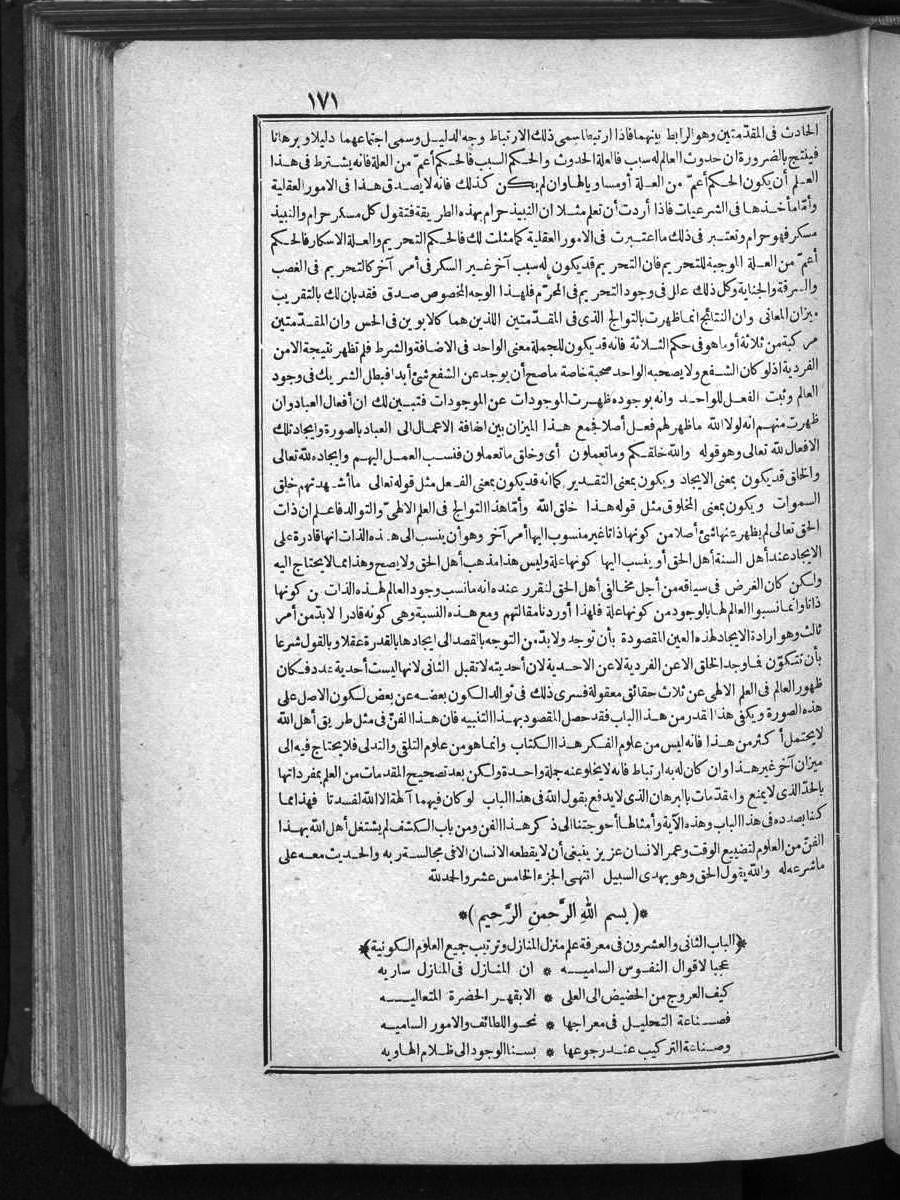 ١٧١
الحادث في المقدّمتين وهو الرابط بينهما فاذا ارتبطا سمى ذلك الارتباط وجه الدليل وسمى اجتماعهما دليلا وبرهانا
فينتج بالضرورة ان حدوث العالم له سبب فالعلة الحدوث والحكم السبب فالحكم أعمّ من العلة فانه يشترط فى هذا
العلم أن يكون الحكم أعمّ من العلة أو مساويا لها وان لم يكن كذلك فانه لا يصدق هذا فى الامور العقلية
وأمّا مأخذها فى الشرعيات فاذا أردت أن تعلم مثلا ان النبيذ حرام بهذه الطريقة فتقول كل مسكر حرام والنبيذ
مسكر فهو حرام وتعتبر فى ذلك ما اعتبرت فى الامور العقلية كما مثلت لك فالحكم التحريم والعلة الاسكار فالحكم
أعمّ من العلة الموجبة للتحريم فان التحريم قد يكون له سبب آخر غير السكر فى أمر آخر كالتحريم فى الغصب
والسرقة والجناية وكل ذلك علل فى وجود التحريم فى المحرّم فلهذا الوجه المخصوص صدق فقد بان لك بالتقريب
ميزان المعانى وان النتائج انما ظهرت بالتوالج الذى فى المقدّمتين اللذين هما كالابوين فى الحس وان المقدّمتين
مركبة من ثلاثة أو ما هو فى حكم الثلاثة فانه قد يكون للجملة معنى الواحد فى الاضافة والشرط فلم تظهر نتيجة الا من
الفردية اذ لو كان الشفع ولا يصحبه الواحد صحبة خاصة ما صح أن يوجد عن الشفع شئ أبدا فبطل الشريك فى وجود
العالم وثبت الفعل للواحد وانه بوجوده ظهرت الموجودات عن الموجودات فتبين لك ان أفعال العباد وان
ظهرت منهم انه لولا الله ما ظهر لهم فعل أصلا فجمع هذا الميزان بين اضافة الاعمال الى العباد بالصورة وايجاد تلك
الافعال لله تعالى وهو قوله والله خلقكم وما تعملون أى وخلق ما تعملون فنسب العمل اليهم وايجاده لله تعالى
والخلق قد يكون بمعنى الايجاد ويكون بمعنى التقدير كما انه قد يكون بمعنى الفعل مثل قوله تعالى ما أشهدتهم خلق
السموات ويكون بمعنى المخلوق مثل قوله هذا خلق الله وأمّا هذا التوالج فى العلم الالهىّ والتوالد فاعلم ان ذات
الحق تعالى لم يظهر عنها شئ أصلا من كونها ذاتا غير منسوب اليها أمر آخر وهو أن ينسب الى هذه الذات انها قادرة على
الايجاد عند أهل السنة أهل الحق أو ينسب اليها كونها علة وليس هذا مذهب أهل الحق ولا يصح وهذا مما لا يحتاج اليه
ولكن كان الغرض فى سياقه من أجل مخالفى أهل الحق لنقرر عنده انه ما نسب وجود العالم لهذه الذات من كونها
ذاتا وانما نسبوا العالم لها بالوجود من كونها علة فلهذا أوردنا مقالتهم ومع هذه النسبة وهى كونه قادرا لا بدّ من أمر
ثالث وهو ارادة الايجاد لهذه العين المقصودة بأن توجد ولا بدّ من التوجه بالقصد الى ايجادها بالقدرة عقلا وبالقول شرعا
بأن تتكوّن فما وجد الخلق الا عن الفردية لا عن الاحدية لان أحديته لا تقبل الثانى لانها ليست أحدية عدد فكان
ظهور العالم فى العلم الالهى عن ثلاث حقائق معقولة فسرى ذلك فى توالد الكون بعضه عن بعض لكون الاصل على
هذه الصورة ويكفى هذا القدر من هذا الباب فقد حصل المقصود بهذا التنبيه فان هذا الفنّ فى مثل طريق أهل الله
لا يحتمل أكثر من هذا فانه ليس من علوم الفكر هذا الكتاب وانما هو من علوم التلقى والتدلى فلا يحتاج فيه الى
ميزان آخر غير هذا وان كان له به ارتباط فانه لا يخلو عنه جملة واحدة ولكن بعد تصحيح المقدمات من العلم بمفرداتها
بالحدّ الذى لا يمنع والمقدّمات بالبرهان الذى لا يدفع يقول الله فى هذا الباب لو كان فيهما آلهة الا الله لفسدتا فهذا مما
كنا بصدده فى هذا الباب وهذه الآية وأمثالها أحوجتنا الى ذكر هذا الفن ومن باب الكشف لم يشتغل أهل الله بهذا
الفنّ من العلوم لتضييع الوقت وعمر الانسان عزيز ينبغى أن لا يقطعه الانسان الا فى مجالسة ربه والحديث معه على
ما شرعه له والله يقول الحق وهو يهدى السبيل انتهى الجزء الخامس عشر والحمد لله
*(بسم الله الرَّحمنِ الرَّحِيمِ)*
*(الباب الثانى والعشرون فى معرفة علم منزل المنازل وترتيب جميع العلوم الكونية)*
عجبا لاقوال النفوس الساميه * ان المنازل فى المنازل ساريه
كيف العروج من الحضيض الى العلى * الا بقهر الحضرة المتعاليه
فصناعة التحليل فى معراجها * نحو اللطائف والامور الساميه
وصناعة التركيب عند رجوعها * بسنا الوجود الى ظلام الهاويه